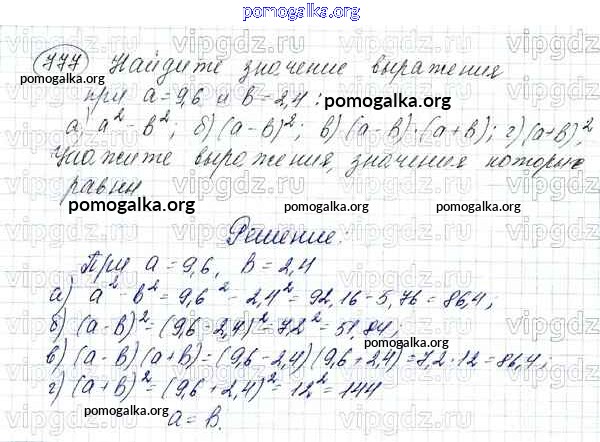 pomogalka.org
777 Найдите значение выражения
pomogalka.org
при a = 9,6 и в = 2,4:
pomogalka.org
а) a² - в²; б) (a - в)²; в) (a - в)·(a + в); г) (a + в)².
Укажите выражения, значения которых
равны
pomogalka.org pomogalka.org pomogalka.org
Решение:
При a = 9,6, в = 2,4
а) a² - в² = 9,6² - 2,4² = 92,16 - 5,76 = 86,4;
б) (a - в)² = (9,6 - 2,4)² = 7,2² = 51,84;
pomogalka.org
в) (a - в)(a + в) = (9,6 - 2,4)(9,6 + 2,4) = 7,2·12 = 86,4;
г) (a + в)² = (9,6 + 2,4)² = 12² = 144
pomogalka.org pomogalka.org
а = в.
vipgdz.ru vipgdz.ru vipgdz.ru vipgdz.ru